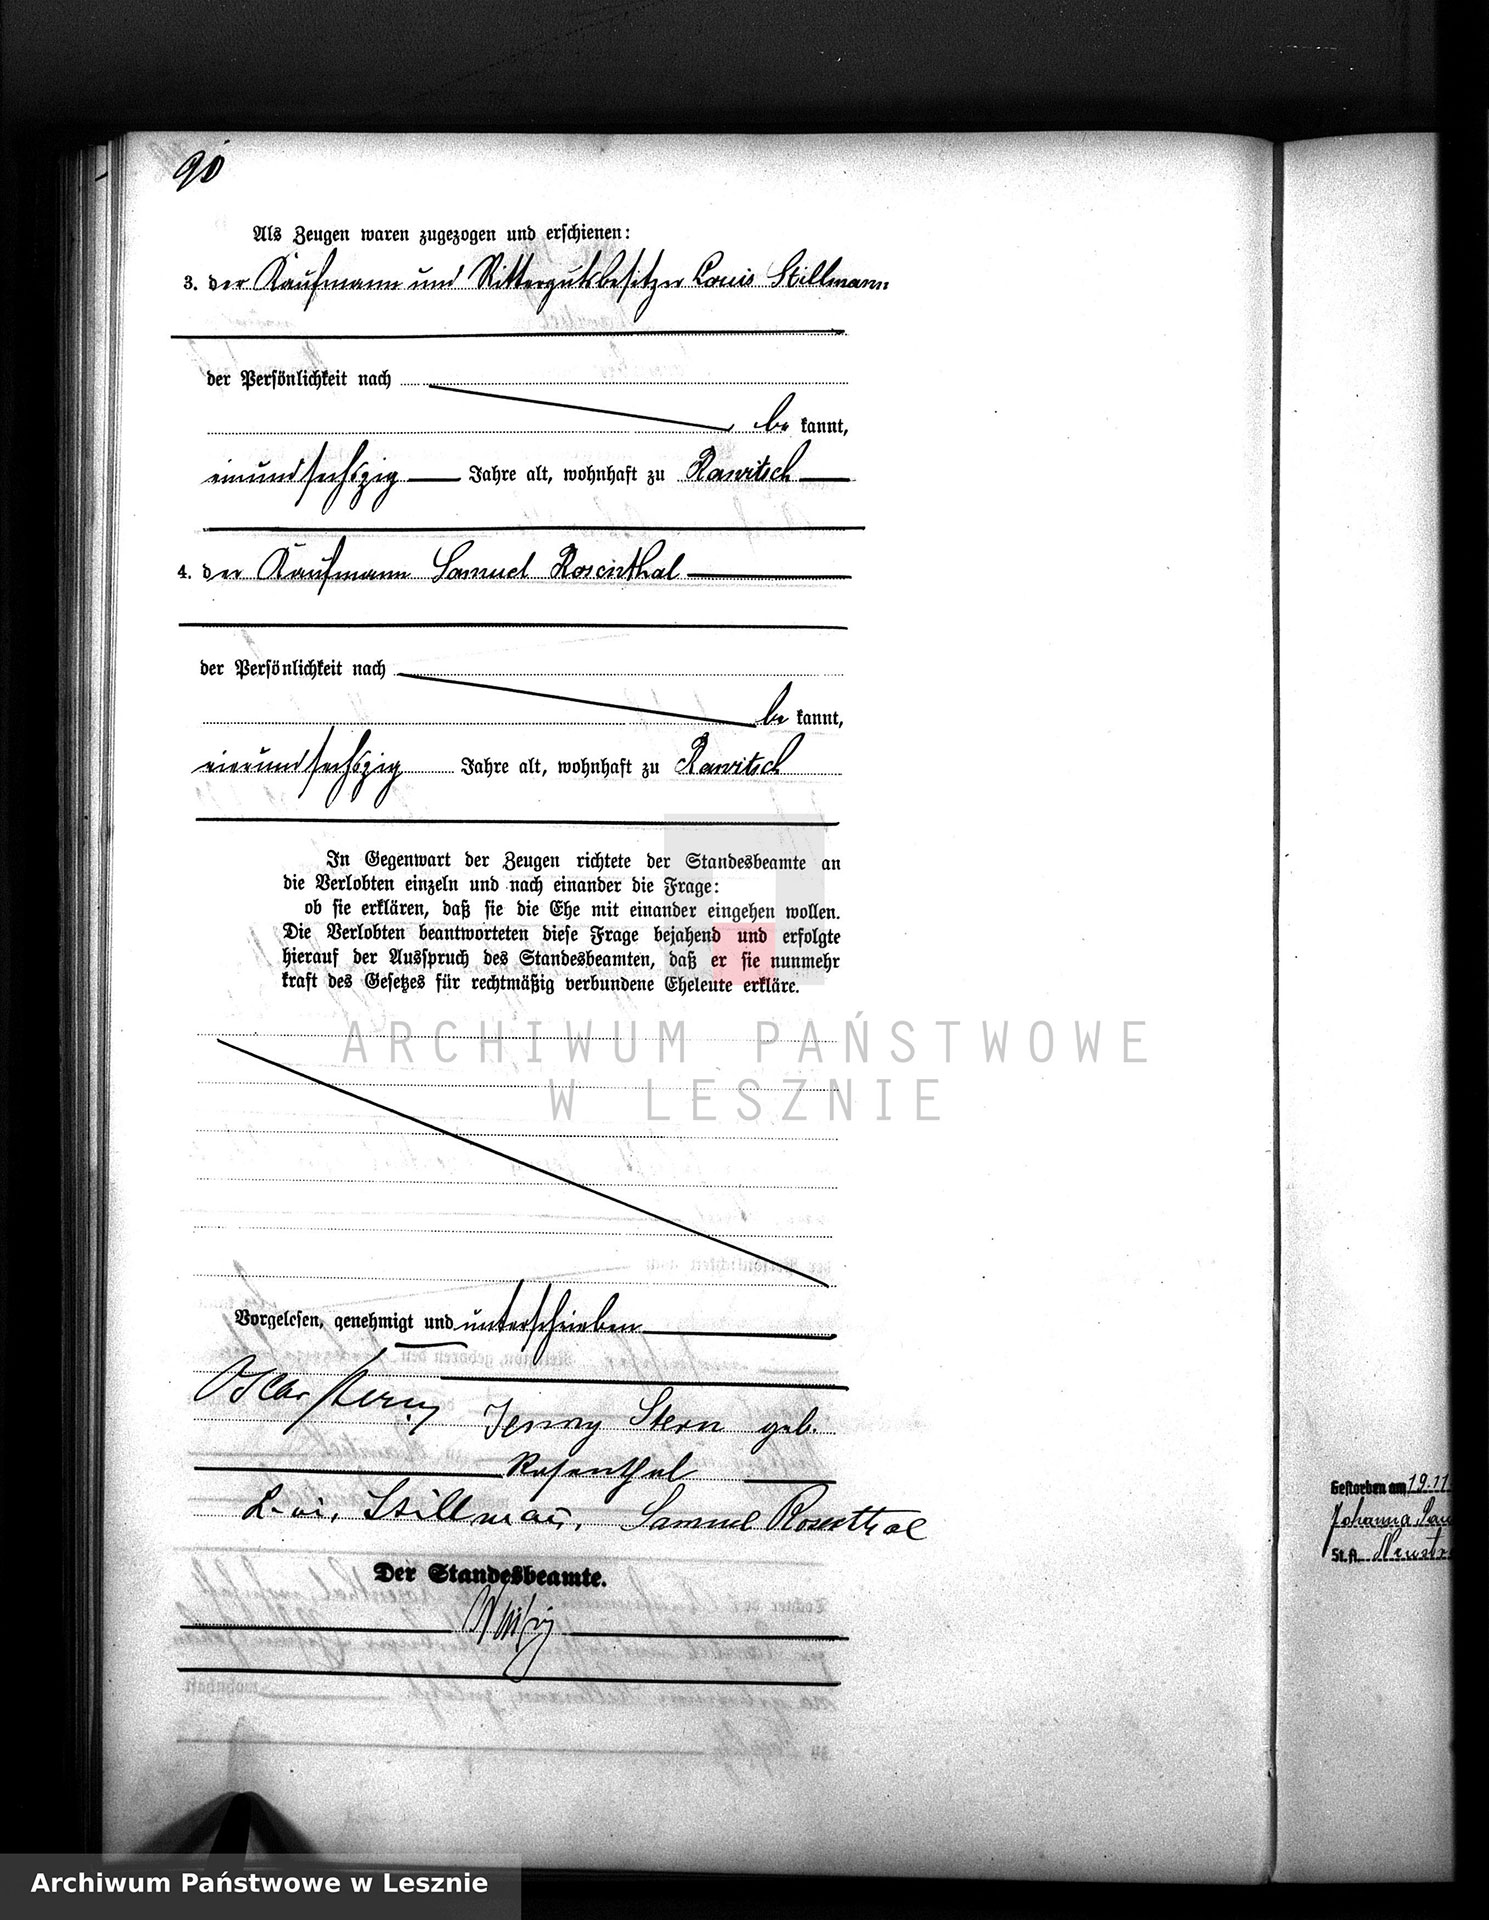 90
Als Zeugen waren zugezogen und erschienen:
3. der Kaufmann und Rittergutsbesitzer Louis Stillmann
der Persönlichkeit nach
be kannt,
einundsechszig Jahre alt, wohnhaft zu Rawitsch
4. der Kaufmann Samuel Rosenthal
der Persönlichkeit nach
be kannt,
vierundsechszig Jahre alt, wohnhaft zu Rawitsch
In Gegenwart der Zeugen richtete der Standesbeamte an
die Verlobten einzeln und nach einander die Frage:
ob sie erklären, daß sie die Ehe mit einander eingehen wollen.
Die Verlobten beantworteten diese Frage bejahend und erfolgte
hierauf der Ausspruch des Standesbeamten, daß er sie nunmehr
kraft des Gesetzes für rechtmäßig verbundene Eheleute erkläre.
ARCHIWUM PAŃSTWOWE
W LESZNIE
Vorgelesen, genehmigt und unterschrieben
Oscar Stern
Jenny Stern geb.
Rosenthal
Louis Stillmann. Samuel Rosenthal
Der Standesbeamte.
Gestorben am 19.11
Johanna
St.A.
Archiwum Państwowe w Lesznie